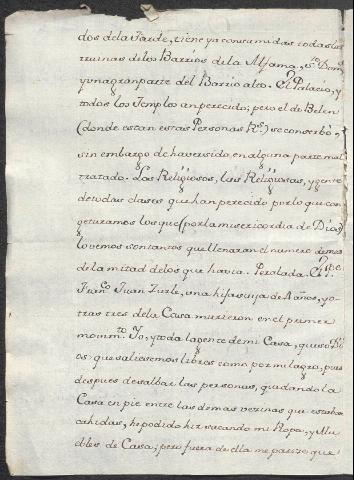 dos dela Tarde, tiene ya consumidas todas las
ruinas delos Barrios dela Alfama, Sto. Dom
y una gran parte del Barrio alto. El Palacio, y
todos los Templos an perecido; pero el de Belen
(donde estan estas Personas Rs.) se conserbò,
sin embargo de haver sido, en alguna parte mal
tratado. Los Religiosos, las Religiosas, y gente
de todas clases que han perecido por lo que con
geturamos los que (por la misericordia de Dios)
lo vemos son tantos que llenaran el numero de mas
de la mitad delos que havia. Peralada
Franco. Juan Zurle, una hija suya de 8 años, y o
tras tres dela Casa murieron en el primer
momto. Yo, y toda la gente de mi Casa, quiso Di
os que saliesemos libres como por milagro, pues
despues de salbar las personas, quedando la
Casa en pie entre las demas vezinas que estaban
cahidas, he podido hir sacando mi Ropa, y Mue
bles de Casa; pero fuera de ella me parece que